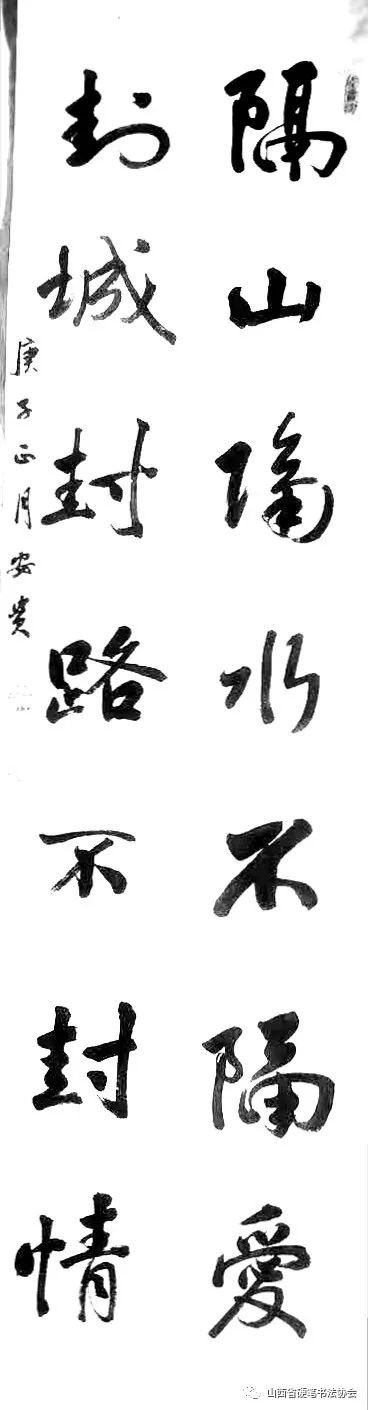 隔山隔水不隔愛
封城封路不封情
庚子正月安贵
山西省硬笔书法协会